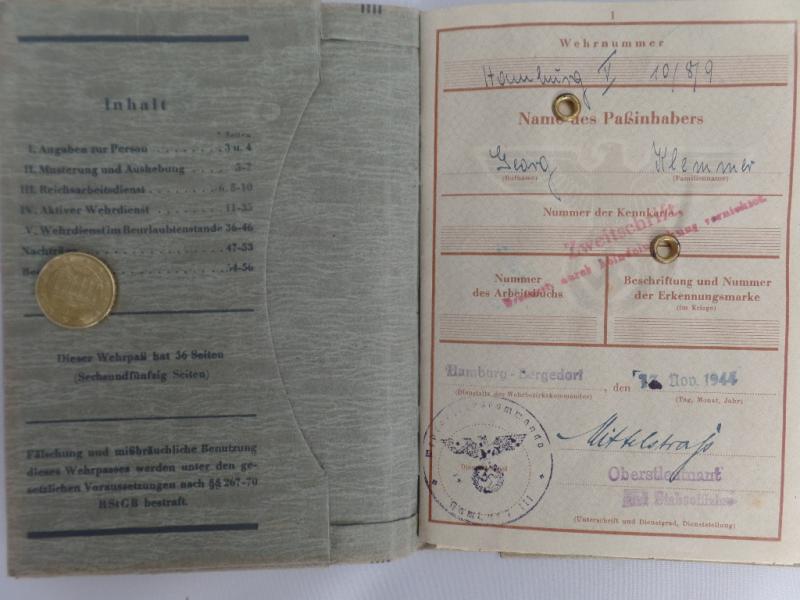 Inhalt
Seiten
I. Angaben zur Person . . . . . . . . 3 u. 4
II. Musterung und Aushebung . . . . . 5-7
III. Reichsarbeitsdienst . . . . . . . . 6, 8-10
IV. Aktiver Wehrdienst . . . . . . . . 11-35
V. Wehrdienst im Beurlaubtenstande 36-46
Nachträge 47-53
54-56
Dieser Wehrpaß hat 56 Seiten
(Sechsundfünfzig Seiten)
Fälschung und mißbräuchliche Benutzung
dieses Wehrpasses werden unter den ge-
setzlichen Voraussetzungen nach §§ 267-70
RStGB bestraft.
1
Wehrnummer
Hamburg V, 10/8/9
Name des Paßinhabers
Georg Klemmer
(Rufname) (Familienname)
Nummer der Kennkarte
Zweitschrift
durch vernichtet.
Nummer
des Arbeitsbuchs
Beschriftung und Nummer
der Erkennungsmarke
(im Kriege)
Hamburg-Bergedorf, den Nov. 1944
(Dienststelle des Wehrbezirkskommandos) (Tag, Monat, Jahr)
Mittelstraß
Oberstleutnant
(Unterschrift und Dienstgrad, Dienststellung)